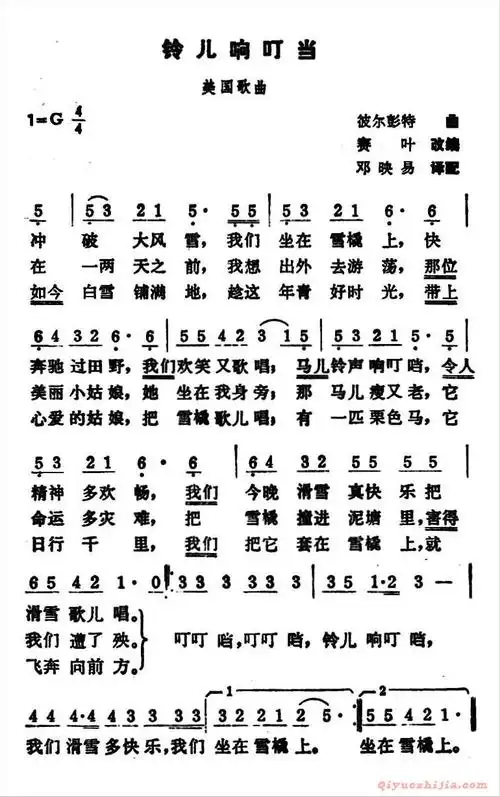 铃儿响叮当
美国歌曲
1=G 4/4
彼尔彭特 曲
赛叶 改编
邓映易 译配
5 | 53 21 5· 55 | 53 21 6· 6 |
冲 破 大风 雪，我们 坐在 雪橇 上，快
在 一两 天之 前，我想 出外 去游 荡，那位
如今 白雪 铺满 地，趁这 年青 好时 光，带上
64 32 6· 6 | 55 42 3 15 | 53 21 5· 5 |
奔驰 过田 野，我们 欢笑 又歌 唱；马儿 铃声 响叮 当，令人
美丽 小姑 娘，她 坐在 我身 旁；那 马儿 瘦又 老，它
心爱 的姑 娘，把 雪橇 歌儿 唱；有 一匹 栗色 马，它
53 21 6· 6 | 64 32 55 55 |
精神 多欢 畅，我们 今晚 滑雪 真快 乐把
命运 多灾 难，把 雪橇 撞进 泥塘 里，害得
日行 千 里，我们 把它 套在 雪橇 上，就
65 42 1· 0 | 33 3 33 3 | 35 1·2 3 — |
滑雪 歌儿 唱。
我们 遭了 殃。 叮叮 当，叮叮 当，铃儿 响叮 当，
飞奔 向前 方。
44 4·4 43 33 | 32 12 2 5 | 55 42 1· |
我们 滑雪 多快 乐，我们 坐在 雪橇 上。 坐在 雪橇 上。
Qiyuozhijia.com